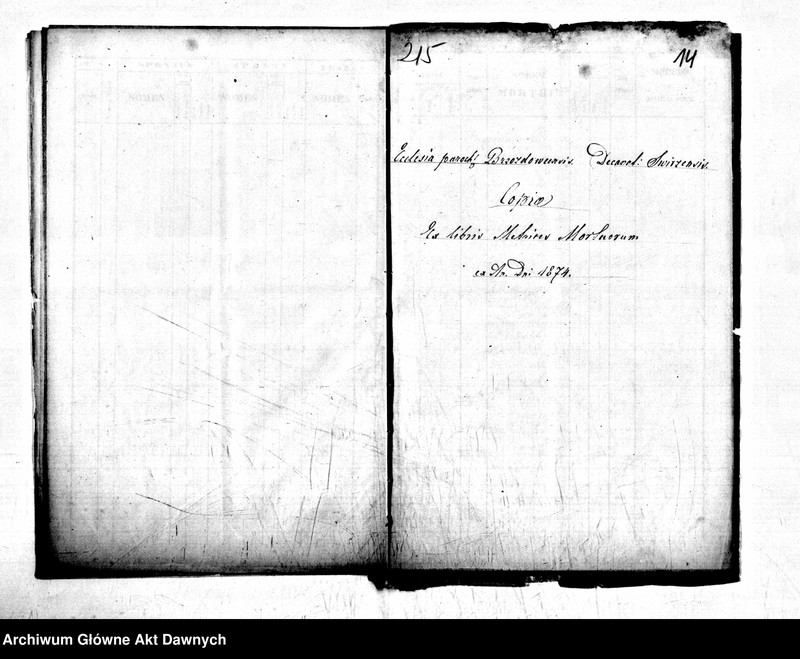 215
14
Ecclesia paroch. Brzozdowcensis. Decanat: Swirzensis.
Copia
Ex libris Metrices Mortuorum
ex An. Dni 1874.
Archiwum Główne Akt Dawnych